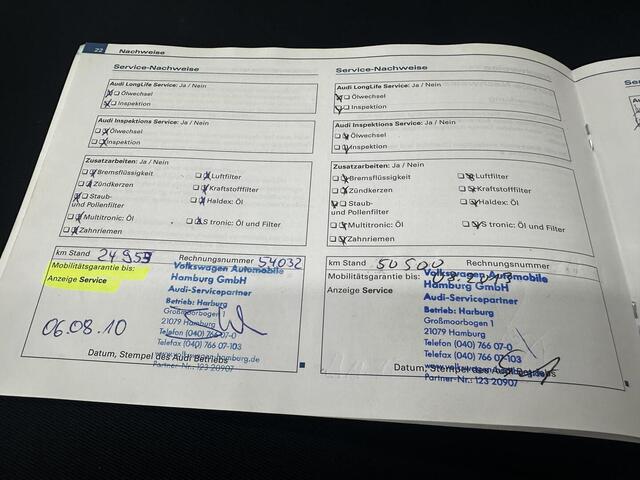 22 Nachweise
Service-Nachweise
Audi LongLife Service: Ja / Nein
Ölwechsel
Inspektion
Audi Inspektions Service: Ja / Nein
Ölwechsel
Inspektion
Zusatzarbeiten: Ja / Nein
Bremsflüssigkeit Luftfilter
Zündkerzen Kraftstofffilter
Staub- Haldex: Öl
und Pollenfilter
Multitronic: Öl S tronic: Öl und Filter
Zahnriemen
km Stand 24.953 Rechnungsnummer 54032
Mobilitätsgarantie bis:
Anzeige Service
Volkswagen Automobile
Hamburg GmbH
Audi-Servicepartner
Betrieb: Harburg
Großmoorbogen 1
21079 Hamburg
Telefon (040) 766 07-0
Telefax (040) 766 07-103
www.volkswagen-hamburg.de
Partner-Nr.: 123 20907
06.08.10
Datum, Stempel des Audi Betriebs
Service-Nachweise
Audi LongLife Service: Ja / Nein
Ölwechsel
Inspektion
Audi Inspektions Service: Ja / Nein
Ölwechsel
Inspektion
Zusatzarbeiten: Ja / Nein
Bremsflüssigkeit Luftfilter
Zündkerzen Kraftstofffilter
Staub- Haldex: Öl
und Pollenfilter
Multitronic: Öl S tronic: Öl und Filter
Zahnriemen
km Stand 50500 Rechnungsnummer
Mobilitätsgarantie bis:
Anzeige Service
Volkswagen Automobile
Hamburg GmbH
Audi-Servicepartner
Betrieb: Harburg
Großmoorbogen 1
21079 Hamburg
Telefon (040) 766 07-0
Telefax (040) 766 07-103
Partner-Nr.: 123 20907
Datum, Stempel des Audi Betriebs